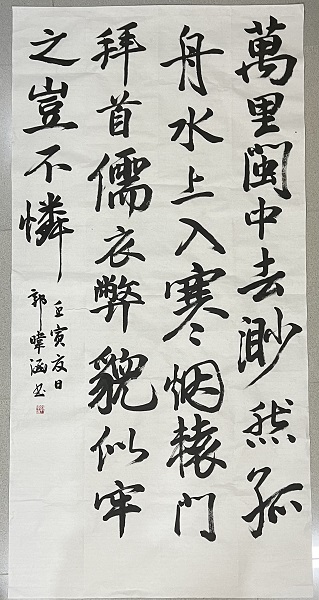 萬里閩中去渺然孤
舟水上入寒烟轅門
拜首儒衣弊貌似牢
之豈不憐
壬寅夏日
郭暐涵书